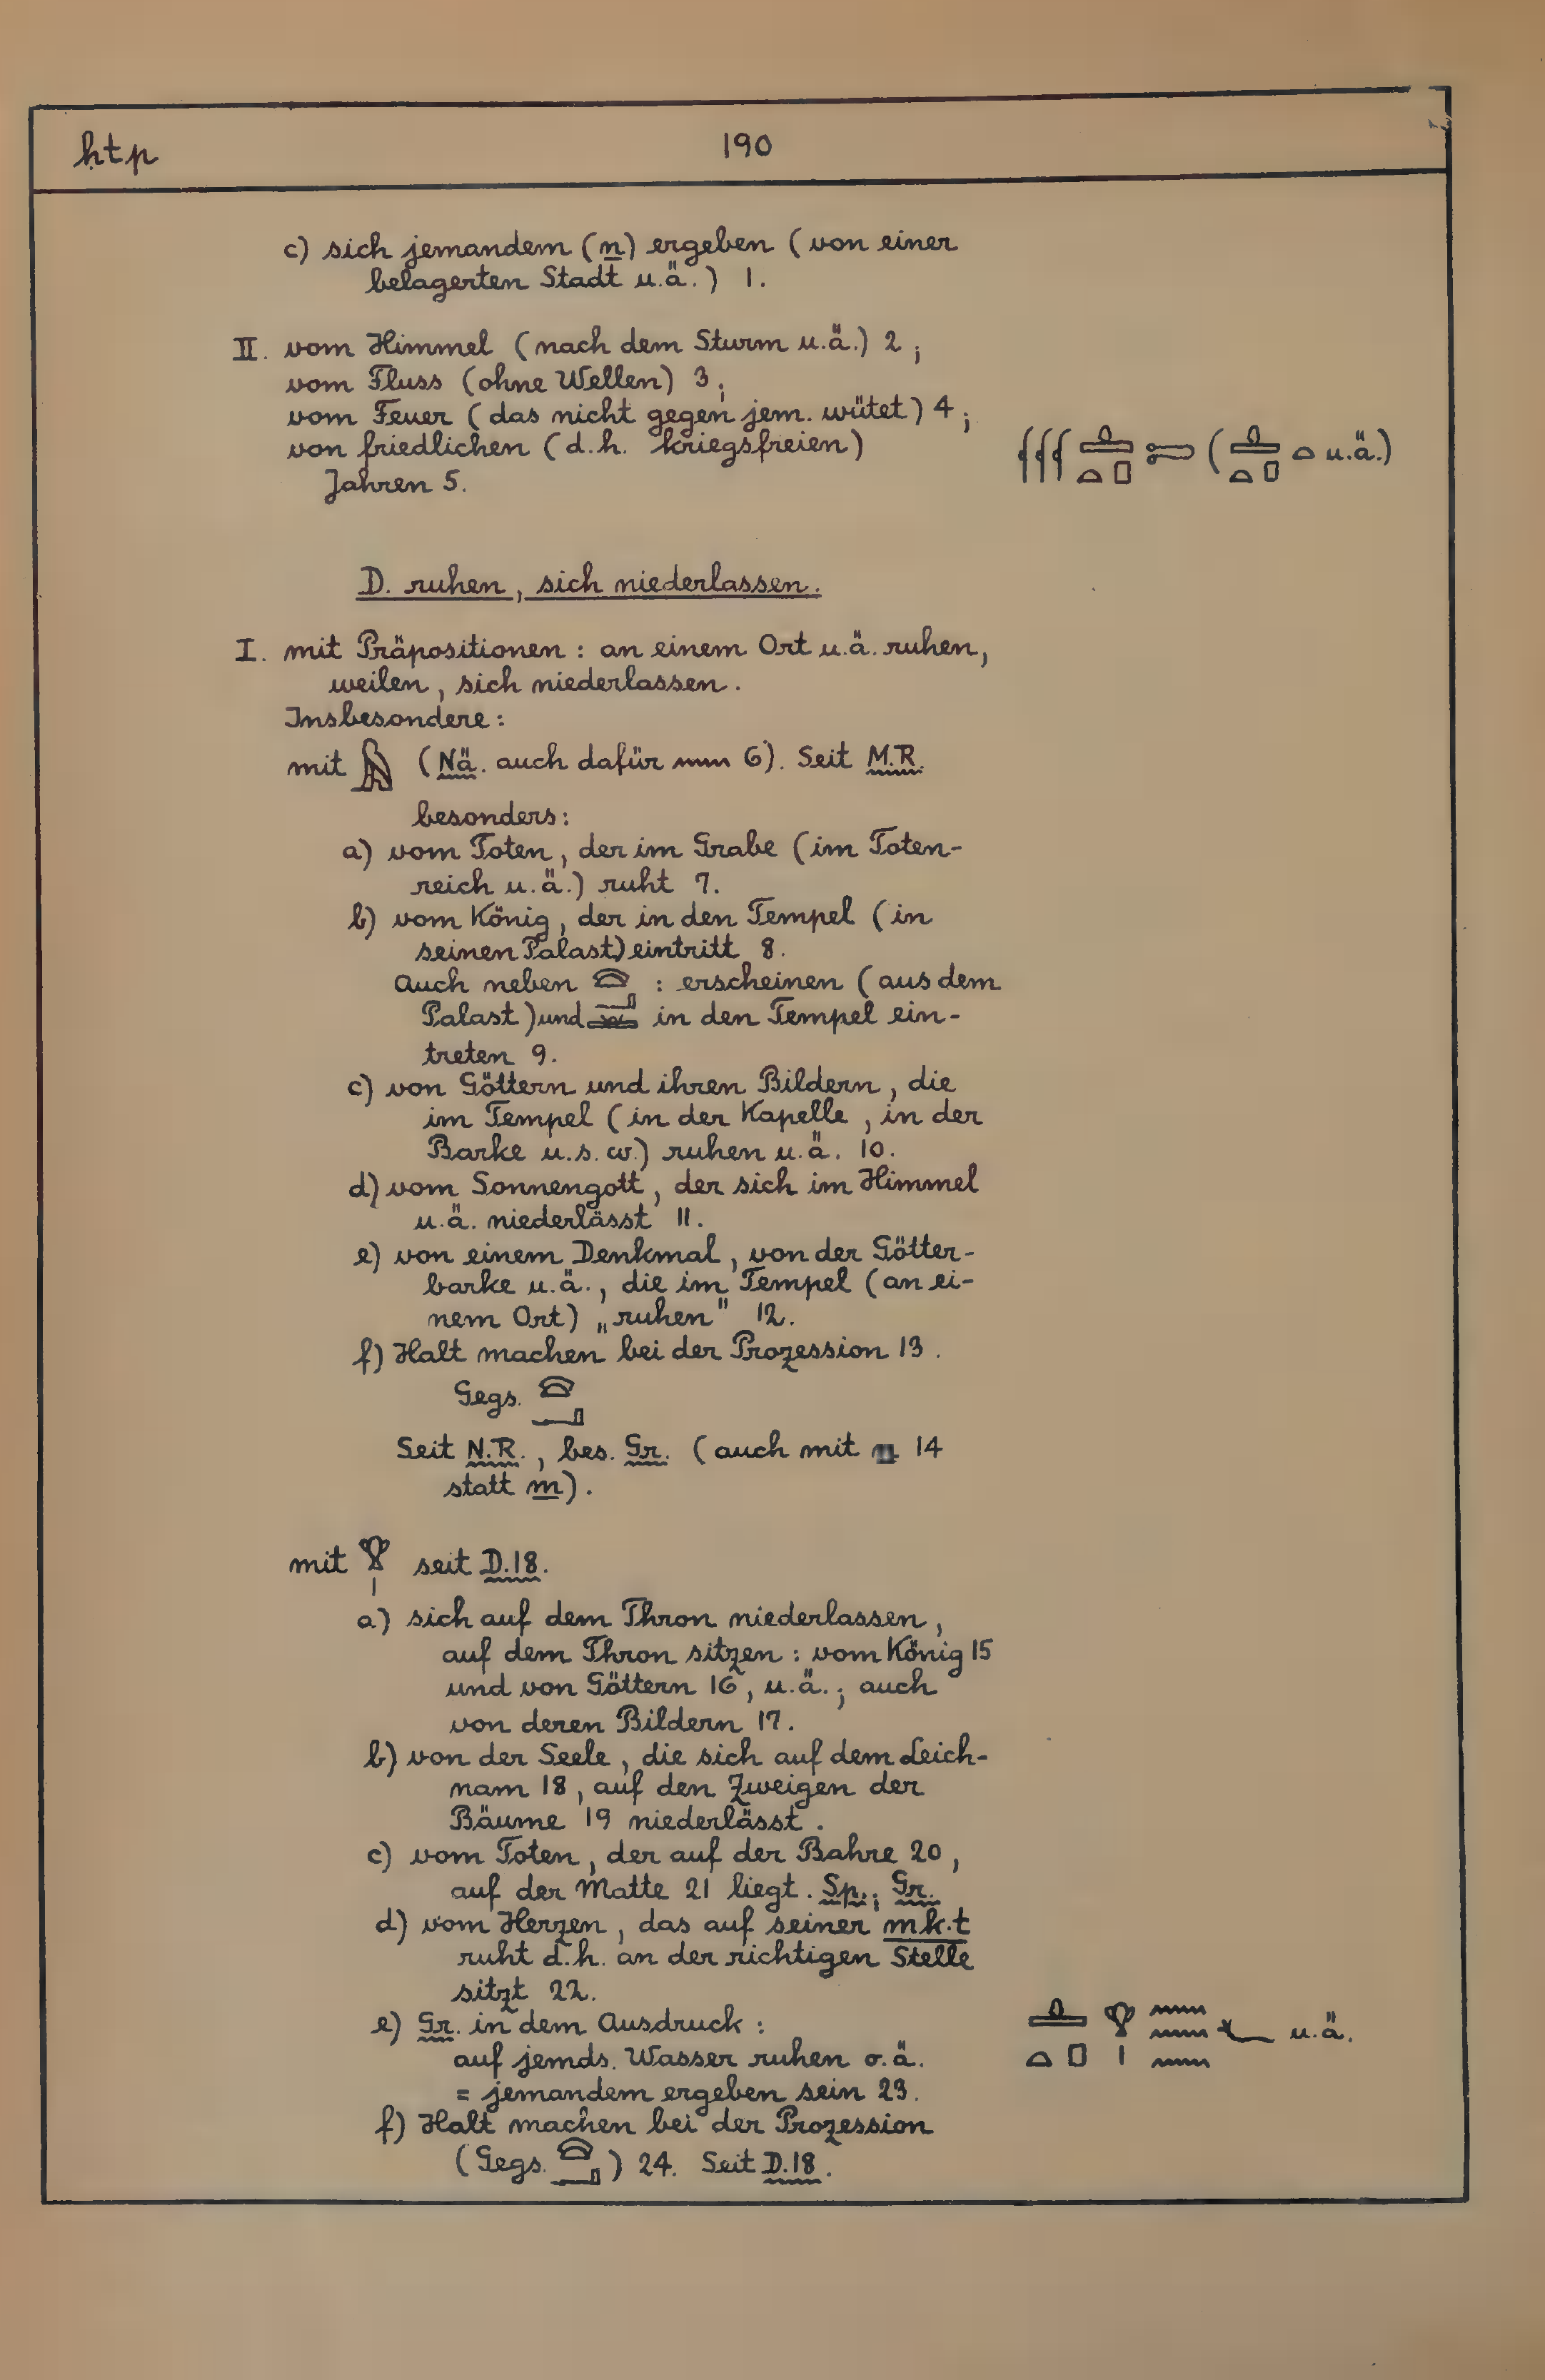 ḥtp
190
c) sich jemandem (n) ergeben (von einer
belagerten Stadt u.ä.) 1.
II. vom Himmel (nach dem Sturm u.ä.) 2;
vom Fluss (ohne Wellen) 3;
vom Feuer (das nicht gegen jem. wütet) 4;
von friedlichen (d.h. kriegsfreien)
Jahren 5.
( u.ä.)
D. ruhen, sich niederlassen.
I. mit Präpositionen: an einem Ort u.ä. ruhen,
weilen, sich niederlassen.
Insbesondere:
mit 𓅓 (Nä. auch dafür 𓈖 6). Seit M.R.
besonders:
a) vom Toten, der im Grabe (im Toten-
reich u.ä.) ruht 7.
b) vom König, der in den Tempel (in
seinen Palast) eintritt 8.
Auch neben 𓈍𓂝 : erscheinen (aus dem
Palast) und in den Tempel ein-
treten 9.
c) von Göttern und ihren Bildern, die
im Tempel (in der Kapelle, in der
Barke u.s.w.) ruhen u.ä. 10.
d) vom Sonnengott, der sich im Himmel
u.ä. niederlässt 11.
e) von einem Denkmal, von der Götter-
barke u.ä., die im Tempel (an ei-
nem Ort) „ruhen" 12.
f) Halt machen bei der Prozession 13.
Gegs. 𓈍𓂝
Seit N.R., bes. Gr. (auch mit 14
statt m).
mit 𓁷𓏤 seit D.18.
a) sich auf dem Thron niederlassen,
auf dem Thron sitzen: vom König 15
und von Göttern 16, u.ä.; auch
von deren Bildern 17.
b) von der Seele, die sich auf dem Leich-
nam 18, auf den Zweigen der
Bäume 19 niederlässt.
c) vom Toten, der auf der Bahre 20,
auf der Matte 21 liegt. Sp.; Gr.
d) vom Herzen, das auf seiner mk.t
ruht d.h. an der richtigen Stelle
sitzt 22.
e) Gr. in dem Ausdruck:
auf jemds. Wasser ruhen o.ä.
= jemandem ergeben sein 23.
𓊵𓏏𓊪𓁷𓏤𓈗𓆑 u.ä.
f) Halt machen bei der Prozession
(Gegs. 𓈍𓂝) 24. Seit D.18.